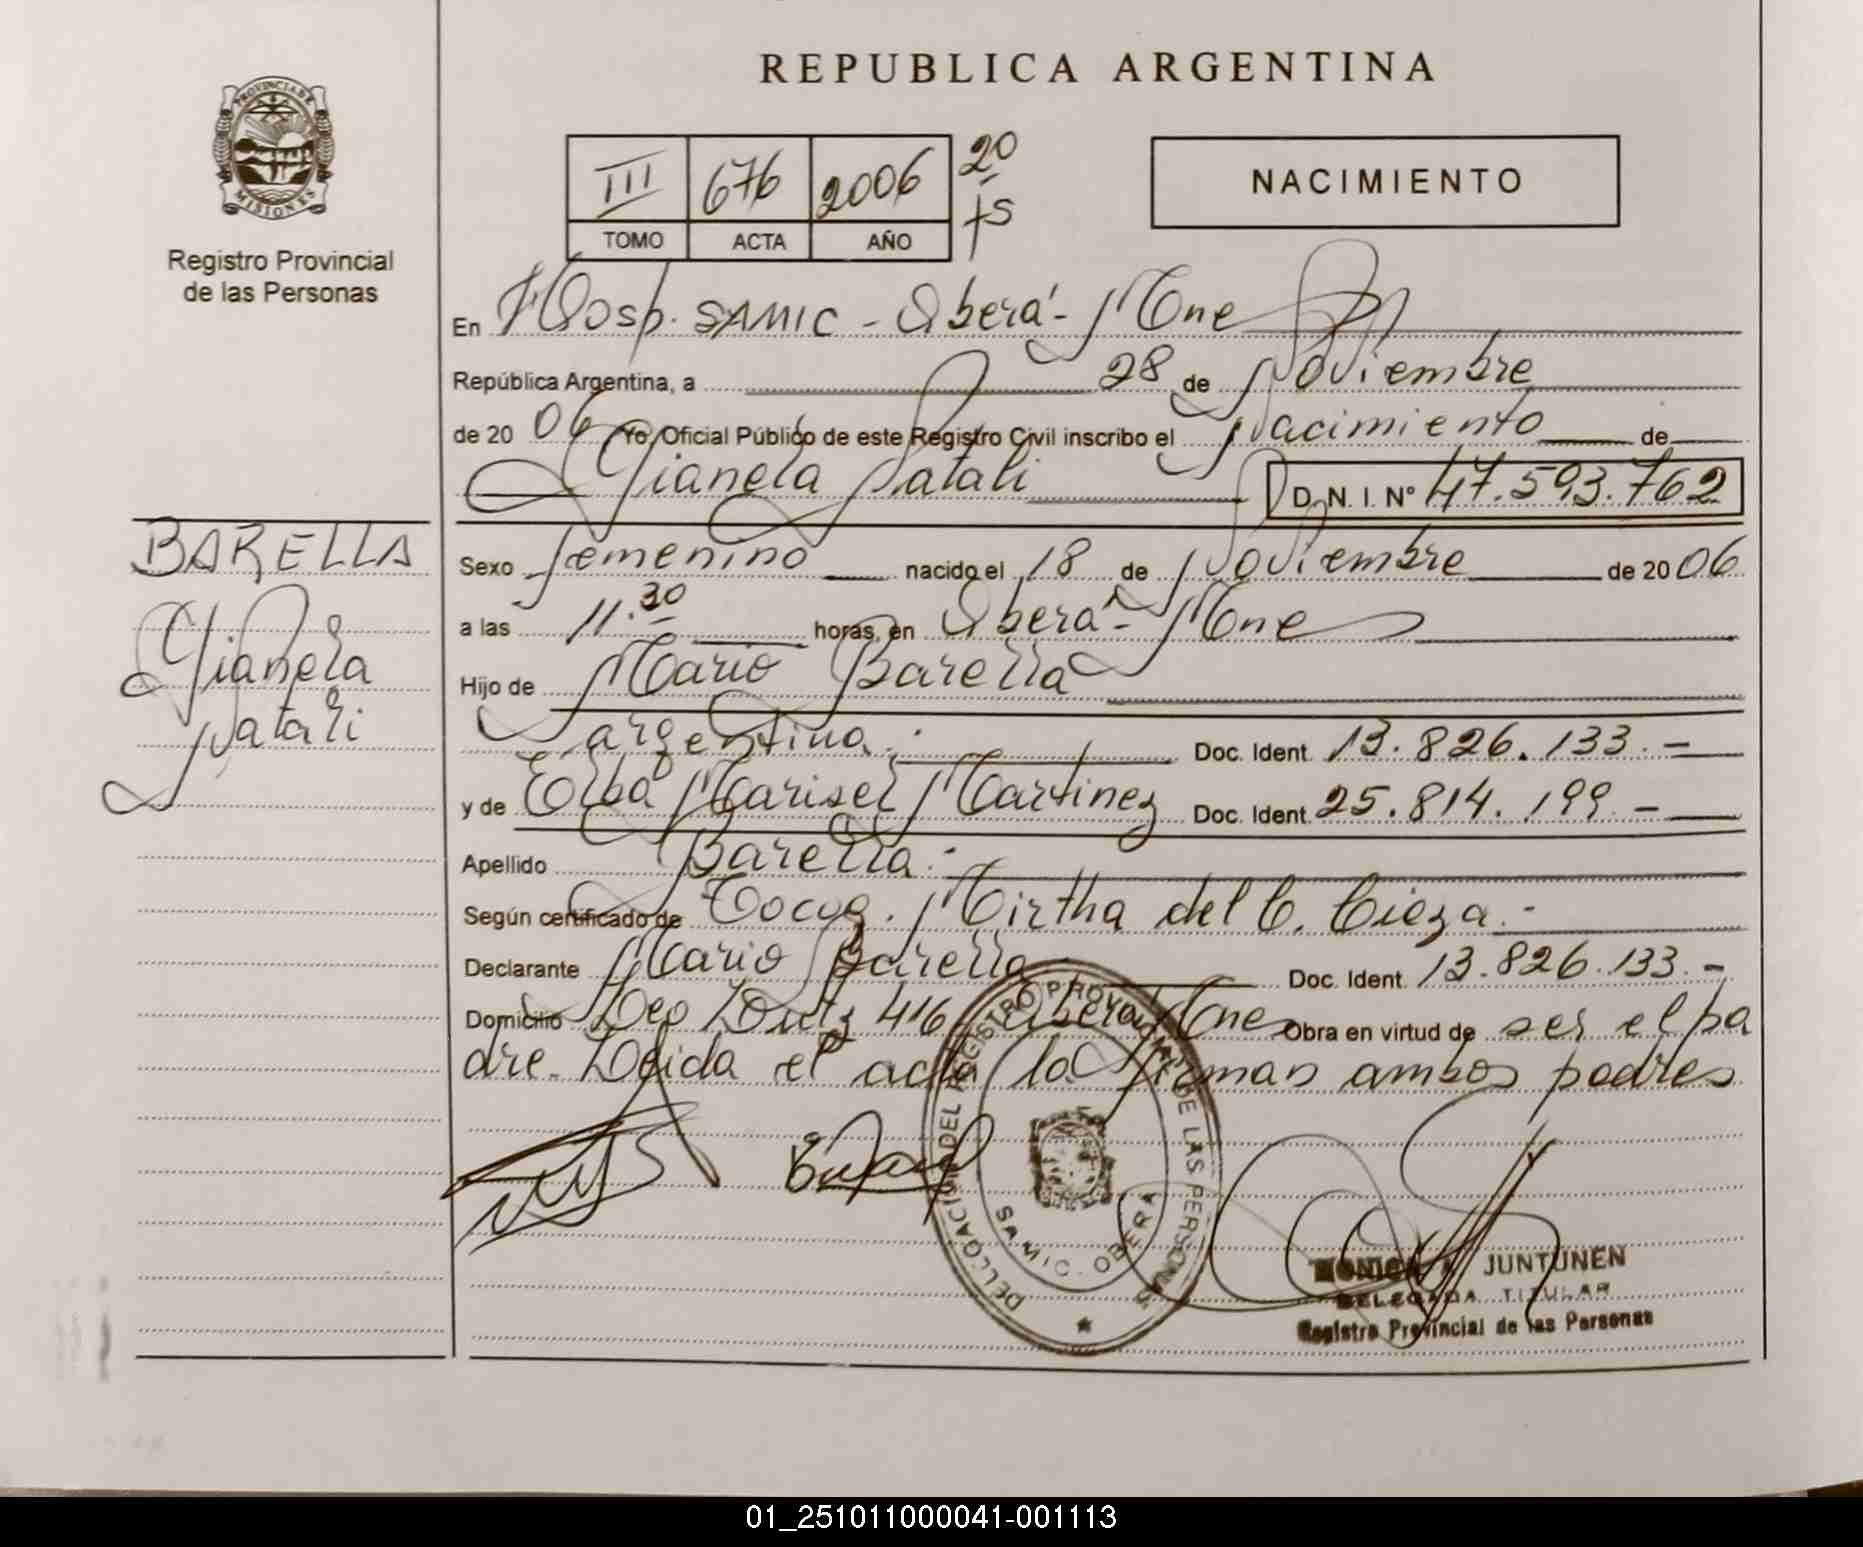 REPUBLICA ARGENTINA
PROVINCIA DE
MISIONES
Registro Provincial
de las Personas
III 676 2006 20
TOMO ACTA AÑO TS
NACIMIENTO
En Hosp. SAMIC - Oberá - Mnes
República Argentina, a 28 de Noviembre
de 20 06 Yo, Oficial Público de este Registro Civil inscribo el Nacimiento de
Gianela Natali D. N. I. Nº 47.593.762
BARELLA
Gianela
Natali
Sexo femenino nacido el 18 de Noviembre de 20 06
a las 11.30 horas, en Oberá - Mnes
Hijo de Mario Barella
argentina.- Doc. Ident. 13.826.133.-
y de Elba Marisel Martinez Doc. Ident. 25.814.199.-
Apellido Barella.-
Según certificado de Tocog. Mirtha del C. Cieza.-
Declarante Mario Barella Doc. Ident. 13.826.133.-
Domicilio 416 Oberá Mnes Obra en virtud de ser el pa
dre. Leida el acta la firman ambos padres
DELEGACION DEL REGISTRO PROVINCIAL DE LAS PERSONAS
SAMIC. OBERA
MONICA JUNTUNEN
DELEGADA TITULAR
Registro Provincial de las Personas
01_251011000041-001113